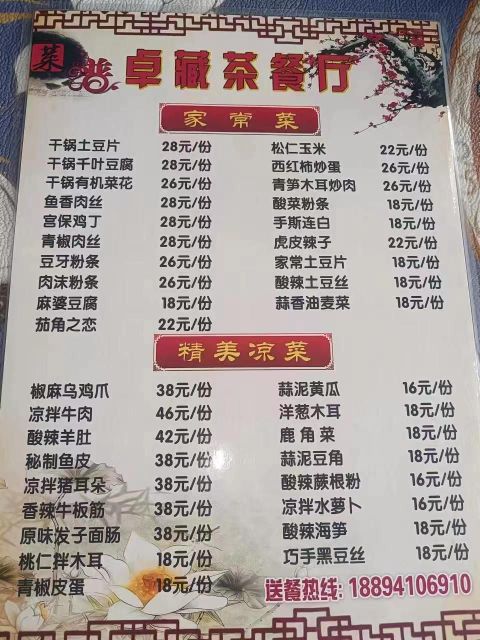 菜谱 卓藏茶餐厅
家常菜
干锅土豆片 28元/份 松仁玉米 22元/份
干锅千叶豆腐 28元/份 西红柿炒蛋 26元/份
干锅有机菜花 26元/份 青笋木耳炒肉 26元/份
鱼香肉丝 28元/份 酸菜粉条 18元/份
宫保鸡丁 28元/份 手斯连白 18元/份
青椒肉丝 28元/份 虎皮辣子 22元/份
豆牙粉条 26元/份 家常土豆片 18元/份
肉沫粉条 26元/份 酸辣土豆丝 18元/份
麻婆豆腐 18元/份 蒜香油麦菜 18元/份
茄角之恋 22元/份
精美凉菜
椒麻乌鸡爪 38元/份 蒜泥黄瓜 16元/份
凉拌牛肉 46元/份 洋葱木耳 18元/份
酸辣羊肚 42元/份 鹿角菜 18元/份
秘制鱼皮 38元/份 蒜泥豆角 18元/份
凉拌猪耳朵 38元/份 酸辣蕨根粉 16元/份
香辣牛板筋 38元/份 凉拌水萝卜 16元/份
原味发子面肠 38元/份 酸辣海笋 18元/份
桃仁拌木耳 18元/份 巧手黑豆丝 18元/份
青椒皮蛋 18元/份 送餐热线: 18894106910